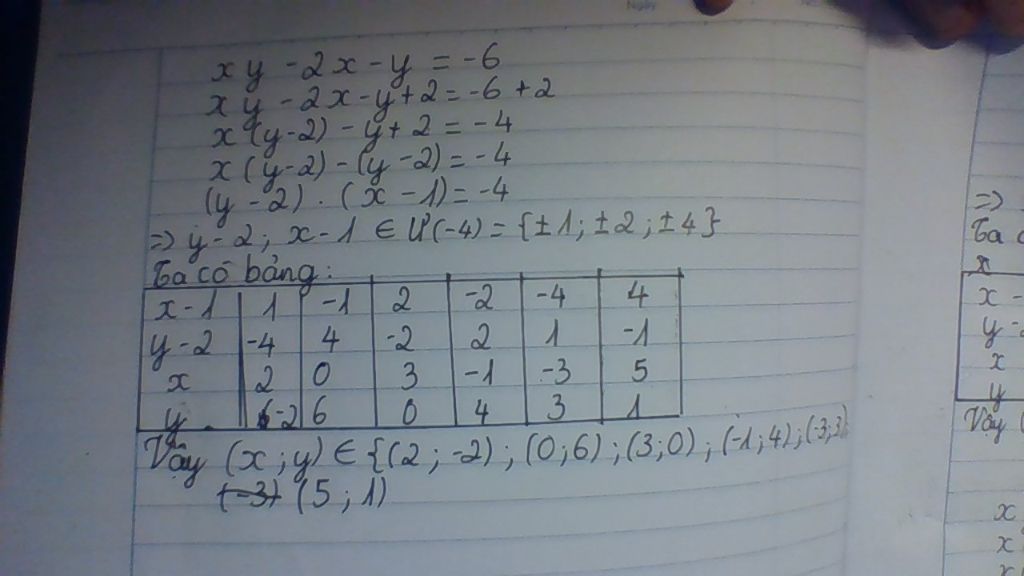 Ngày
xy - 2x - y = -6
xy - 2x - y + 2 = -6 + 2
x(y-2) - y + 2 = -4
x(y-2) - (y-2) = -4
(y-2) . (x-1) = -4
=> y-2; x-1 ∈ Ư(-4) = {±1; ±2; ±4}
Ta có bảng:
x-1 1 -1 2 -2 -4 4
y-2 -4 4 -2 2 1 -1
x 2 0 3 -1 -3 5
y -2 6 0 4 3 1
Vậy (x; y) ∈ {(2; -2); (0; 6); (3; 0); (-1; 4); (-3; 3);
(-3) (5; 1)
=>
Ta c
x
x -
y -
x
y
Vậy (
x
x